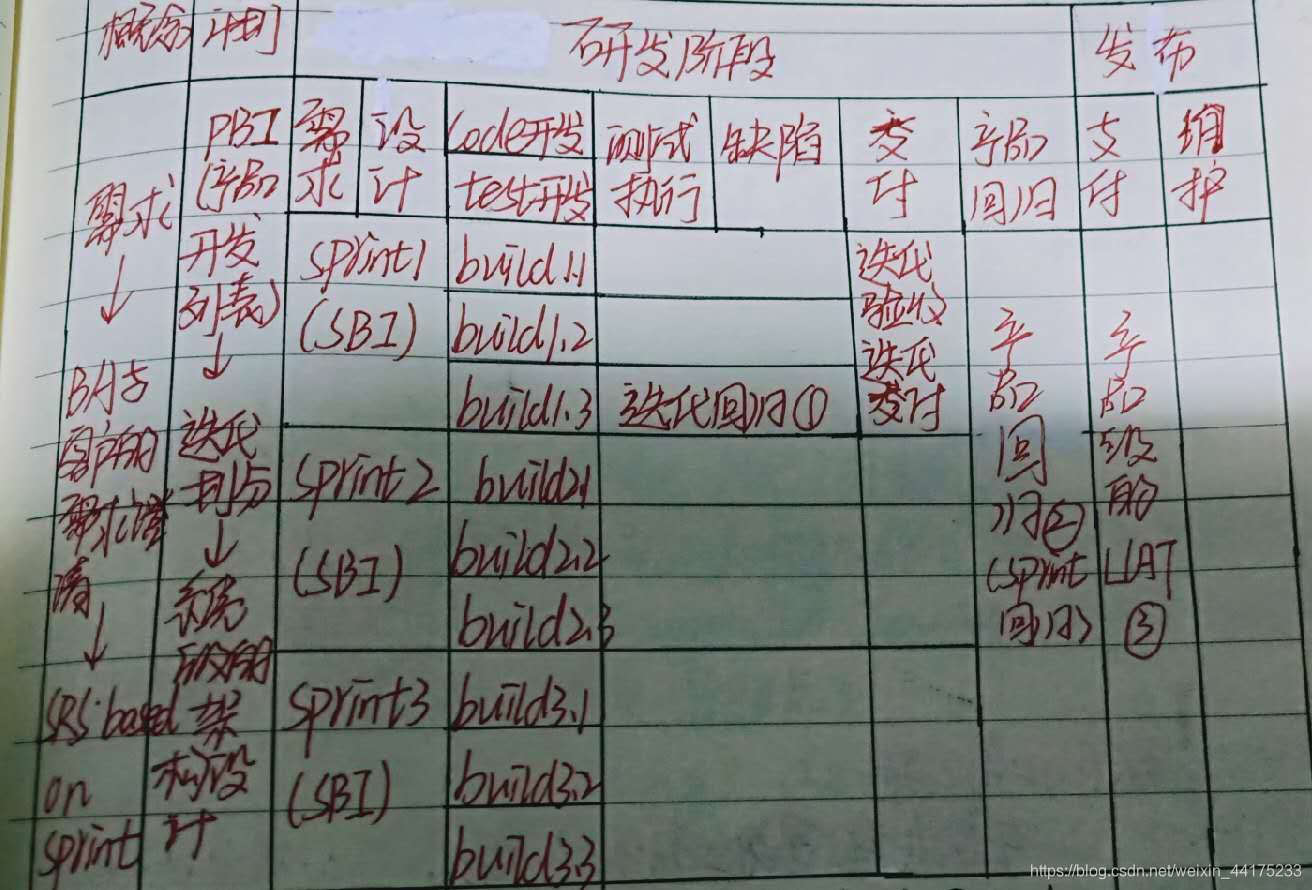 概念 计划 研发阶段 发布
需求
↓
BA与
客户的
需求澄
清
↓
SRS:based
on
sprint
PBI
(产品
开发
列表)
↓
迭代
划分
↓
系统
阶段的
架
构设
计
需
求
设
计
code开发
test开发
测试
执行
缺陷
交
付
产品
回归
支
付
维
护
sprint1
(SBI)
build1.1
build1.2
build1.3
迭代回归①
迭代
验收
迭代
交付
sprint2
(SBI)
build2.1
build2.2
build2.3
sprint3
(SBI)
build3.1
build3.2
build3.3
产
品
回
归②
(sprint
回归)
产
品
级
的
UAT
③
https://blog.csdn.net/weixin_44175233